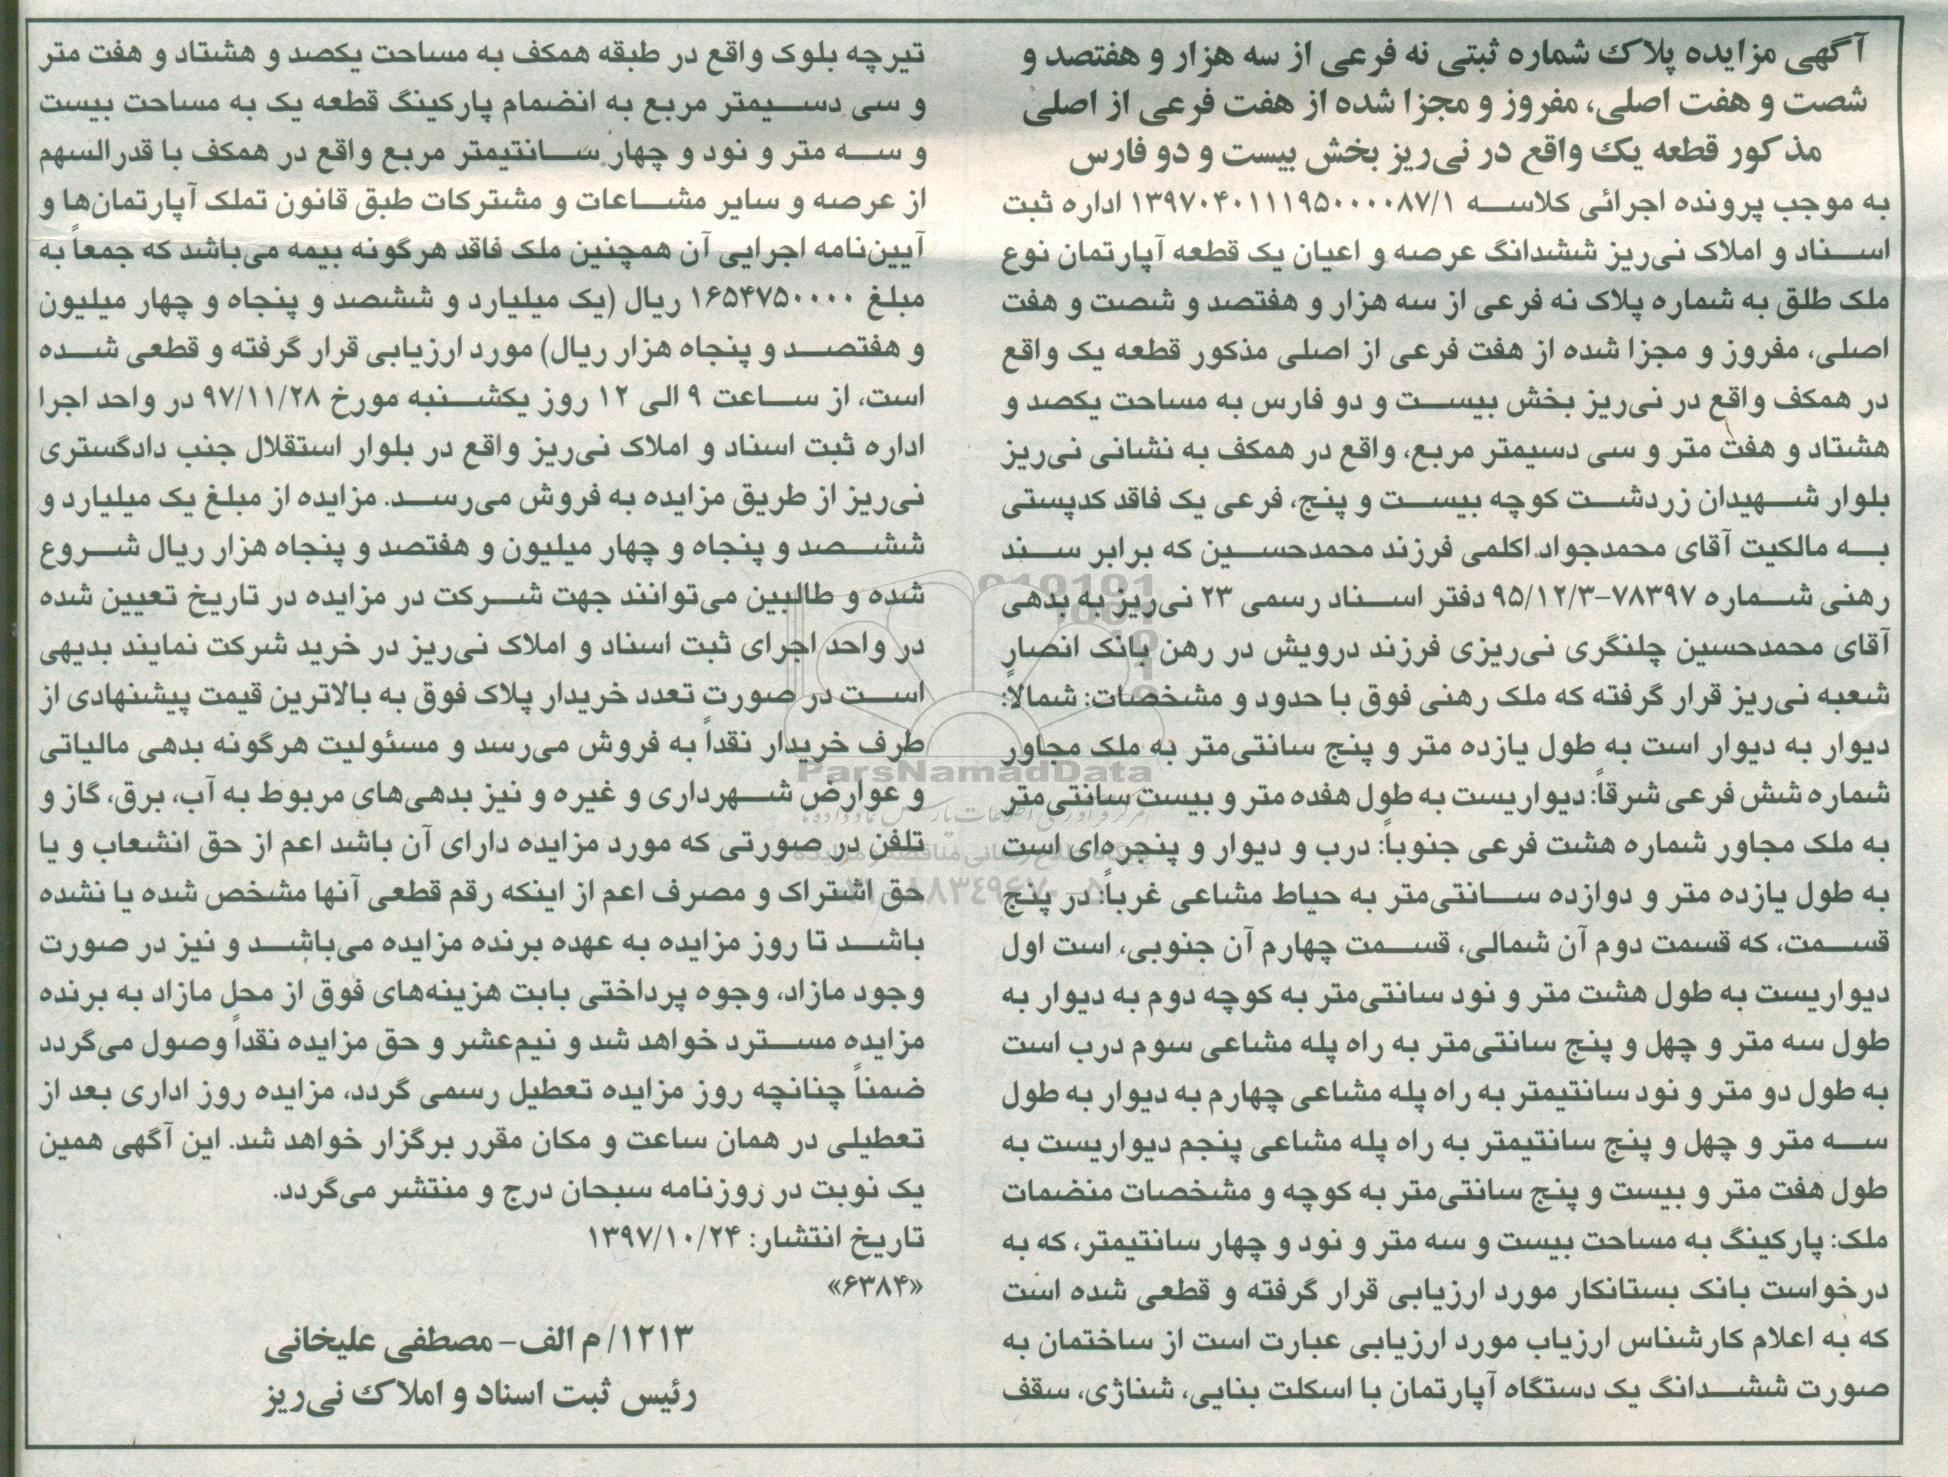 آگهی مزایده پلاک شماره ثبتی نه فرعی از سه هزار و هفتصد و
شصت و هفت اصلی، مفروز و مجزا شده از هفت فرعی از اصلی
مذکور قطعه یک واقع در نی‌ریز بخش بیست و دو فارس
به موجب پرونده اجرائی کلاسه ۱۳۹۷۰۴۰۱۱۱۹۵۰۰۰۰۸۷/۱ اداره ثبت
اسناد و املاک نی‌ریز ششدانگ عرصه و اعیان یک قطعه آپارتمان نوع
ملک طلق به شماره پلاک نه فرعی از سه هزار و هفتصد و شصت و هفت
اصلی، مفروز و مجزا شده از هفت فرعی از اصلی مذکور قطعه یک واقع
در همکف واقع در نی‌ریز بخش بیست و دو فارس به مساحت یکصد و
هشتاد و هفت متر و سی دسیمتر مربع، واقع در همکف به نشانی نی‌ریز
بلوار شهیدان زردشت کوچه بیست و پنج، فرعی یک فاقد کدپستی
به مالکیت آقای محمدجواد اکلمی فرزند محمدحسین که برابر سند
رهنی شماره ۷۸۳۹۷-۹۵/۱۲/۳ دفتر اسناد رسمی ۲۳ نی‌ریز به بدهی
آقای محمدحسین چلنگری نی‌ریزی فرزند درویش در رهن بانک انصار
شعبه نی‌ریز قرار گرفته که ملک رهنی فوق با حدود و مشخصات: شمالاً:
دیوار به دیوار است به طول یازده متر و پنج سانتی‌متر به ملک مجاور
شماره شش فرعی شرقاً: دیواریست به طول هفده متر و بیست سانتی‌متر
به ملک مجاور شماره هشت فرعی جنوباً: درب و دیوار و پنجره‌ای است
به طول یازده متر و دوازده سانتی‌متر به حیاط مشاعی غرباً: در پنج
قسمت، که قسمت دوم آن شمالی، قسمت چهارم آن جنوبی، است اول
دیواریست به طول هشت متر و نود سانتی‌متر به کوچه دوم به دیوار به
طول سه متر و چهل و پنج سانتی‌متر به راه پله مشاعی سوم درب است
به طول دو متر و نود سانتیمتر به راه پله مشاعی چهارم به دیوار به طول
سه متر و چهل و پنج سانتیمتر به راه پله مشاعی پنجم دیواریست به
طول هفت متر و بیست و پنج سانتی‌متر به کوچه و مشخصات منضمات
ملک: پارکینگ به مساحت بیست و سه متر و نود و چهار سانتیمتر، که به
درخواست بانک بستانکار مورد ارزیابی قرار گرفته و قطعی شده است
که به اعلام کارشناس ارزیاب مورد ارزیابی عبارت است از ساختمان به
صورت ششدانگ یک دستگاه آپارتمان با اسکلت بنایی، شناژی، سقف
تیرچه بلوک واقع در طبقه همکف به مساحت یکصد و هشتاد و هفت متر
و سی دسیمتر مربع به انضمام پارکینگ قطعه یک به مساحت بیست
و سه متر و نود و چهار سانتیمتر مربع واقع در همکف با قدرالسهم
از عرصه و سایر مشاعات و مشترکات طبق قانون تملک آپارتمان‌ها و
آیین‌نامه اجرایی آن همچنین ملک فاقد هرگونه بیمه می‌باشد که جمعاً به
مبلغ ۱۶۵۴۷۵۰۰۰۰ ریال (یک میلیارد و ششصد و پنجاه و چهار میلیون
و هفتصد و پنجاه هزار ریال) مورد ارزیابی قرار گرفته و قطعی شده
است، از ساعت ۹ الی ۱۲ روز یکشنبه مورخ ۹۷/۱۱/۲۸ در واحد اجرا
اداره ثبت اسناد و املاک نی‌ریز واقع در بلوار استقلال جنب دادگستری
نی‌ریز از طریق مزایده به فروش می‌رسد. مزایده از مبلغ یک میلیارد و
ششصد و پنجاه و چهار میلیون و هفتصد و پنجاه هزار ریال شروع
شده و طالبین می‌توانند جهت شرکت در مزایده در تاریخ تعیین شده
در واحد اجرای ثبت اسناد و املاک نی‌ریز در خرید شرکت نمایند بدیهی
است در صورت تعدد خریدار پلاک فوق به بالاترین قیمت پیشنهادی از
طرف خریدار نقداً به فروش می‌رسد و مسئولیت هرگونه بدهی مالیاتی
و عوارض شهرداری و غیره و نیز بدهی‌های مربوط به آب، برق، گاز و
تلفن در صورتی که مورد مزایده دارای آن باشد اعم از حق انشعاب و یا
حق اشتراک و مصرف اعم از اینکه رقم قطعی آنها مشخص شده یا نشده
باشد تا روز مزایده به عهده برنده مزایده می‌باشد و نیز در صورت
وجود مازاد، وجوه پرداختی بابت هزینه‌های فوق از محل مازاد به برنده
مزایده مسترد خواهد شد و نیم‌عشر و حق مزایده نقداً وصول می‌گردد
ضمناً چنانچه روز مزایده تعطیل رسمی گردد، مزایده روز اداری بعد از
تعطیلی در همان ساعت و مکان مقرر برگزار خواهد شد. این آگهی همین
یک نوبت در روزنامه سبحان درج و منتشر می‌گردد.
تاریخ انتشار: ۱۳۹۷/۱۰/۲۴
«۶۳۸۴»
۱۲۱۳/ م الف- مصطفی علیخانی
رئیس ثبت اسناد و املاک نی‌ریز
ParsNamadData